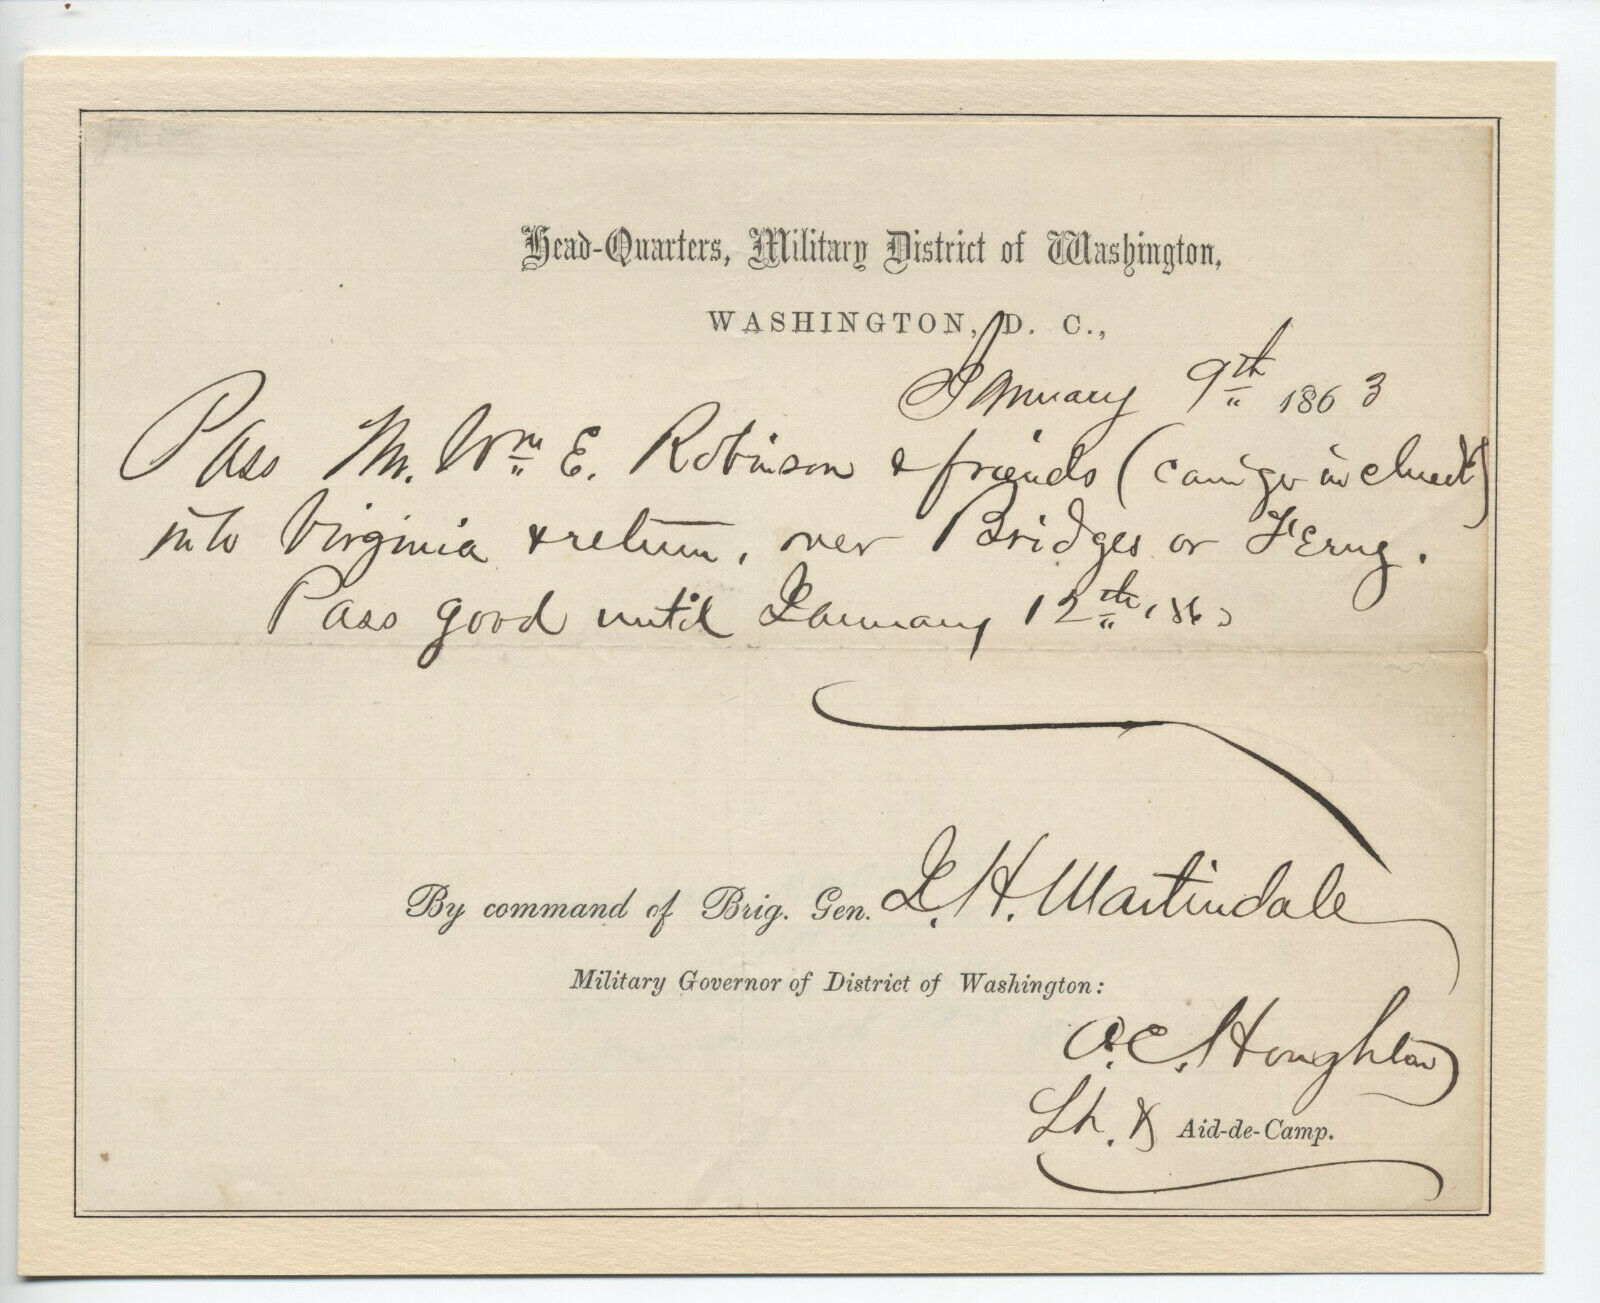 Head-Quarters, Military District of Washington,
WASHINGTON, D. C.,
January 9th 1863
Pass Mr. Wm E. Robinson & friends (
into Virginia & return, over Bridges or Ferry.
Pass good until January 12th 1863
By command of Brig. Gen. J. H. Martindale
Military Governor of District of Washington:
A. C. Houghton
Lt. & Aid-de-Camp.